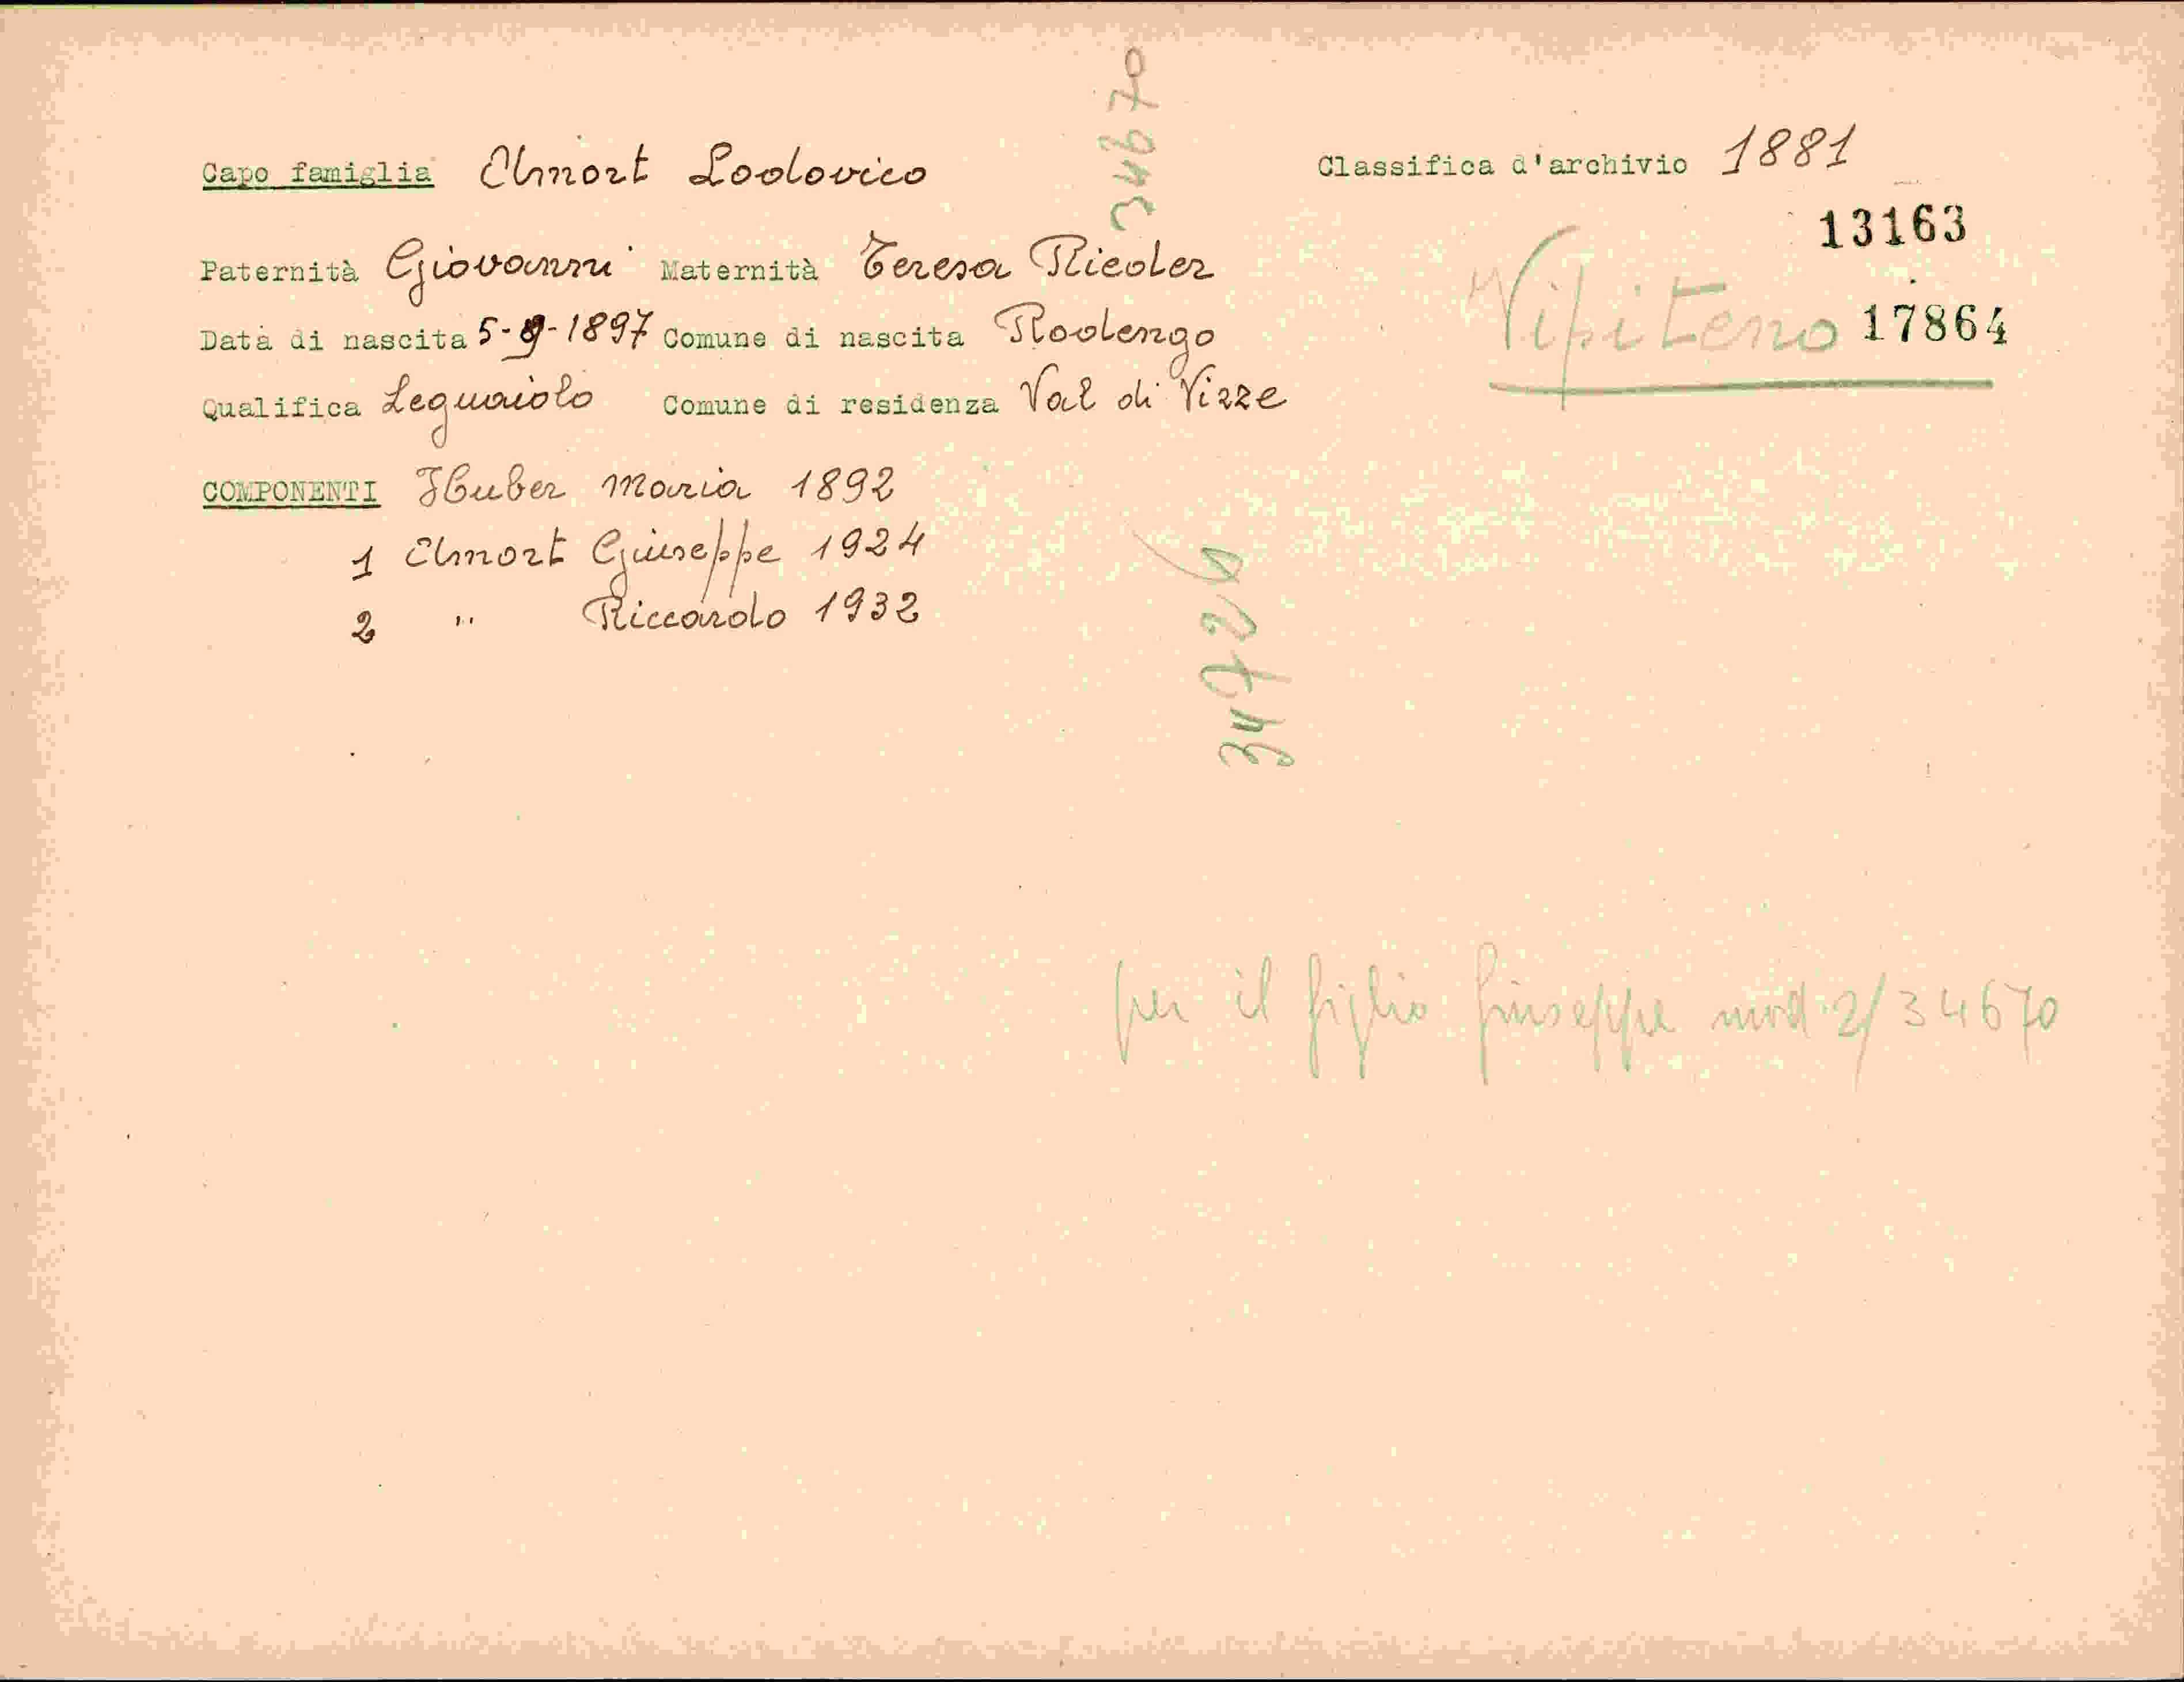 34670
Capo famiglia Amort Lodovico Classifica d'archivio 1881
13163
Paternità Giovanni Maternità Teresa Rieder
Vipiteno 17864
Data di nascita 5-9-1897 Comune di nascita Rodengo
Qualifica Legnaiolo Comune di residenza Val di Vizze
COMPONENTI Huber Maria 1892
1 Amort Giuseppe 1924
2 " Riccardo 1932
34726
per il figlio Giuseppe mod. 2/34670